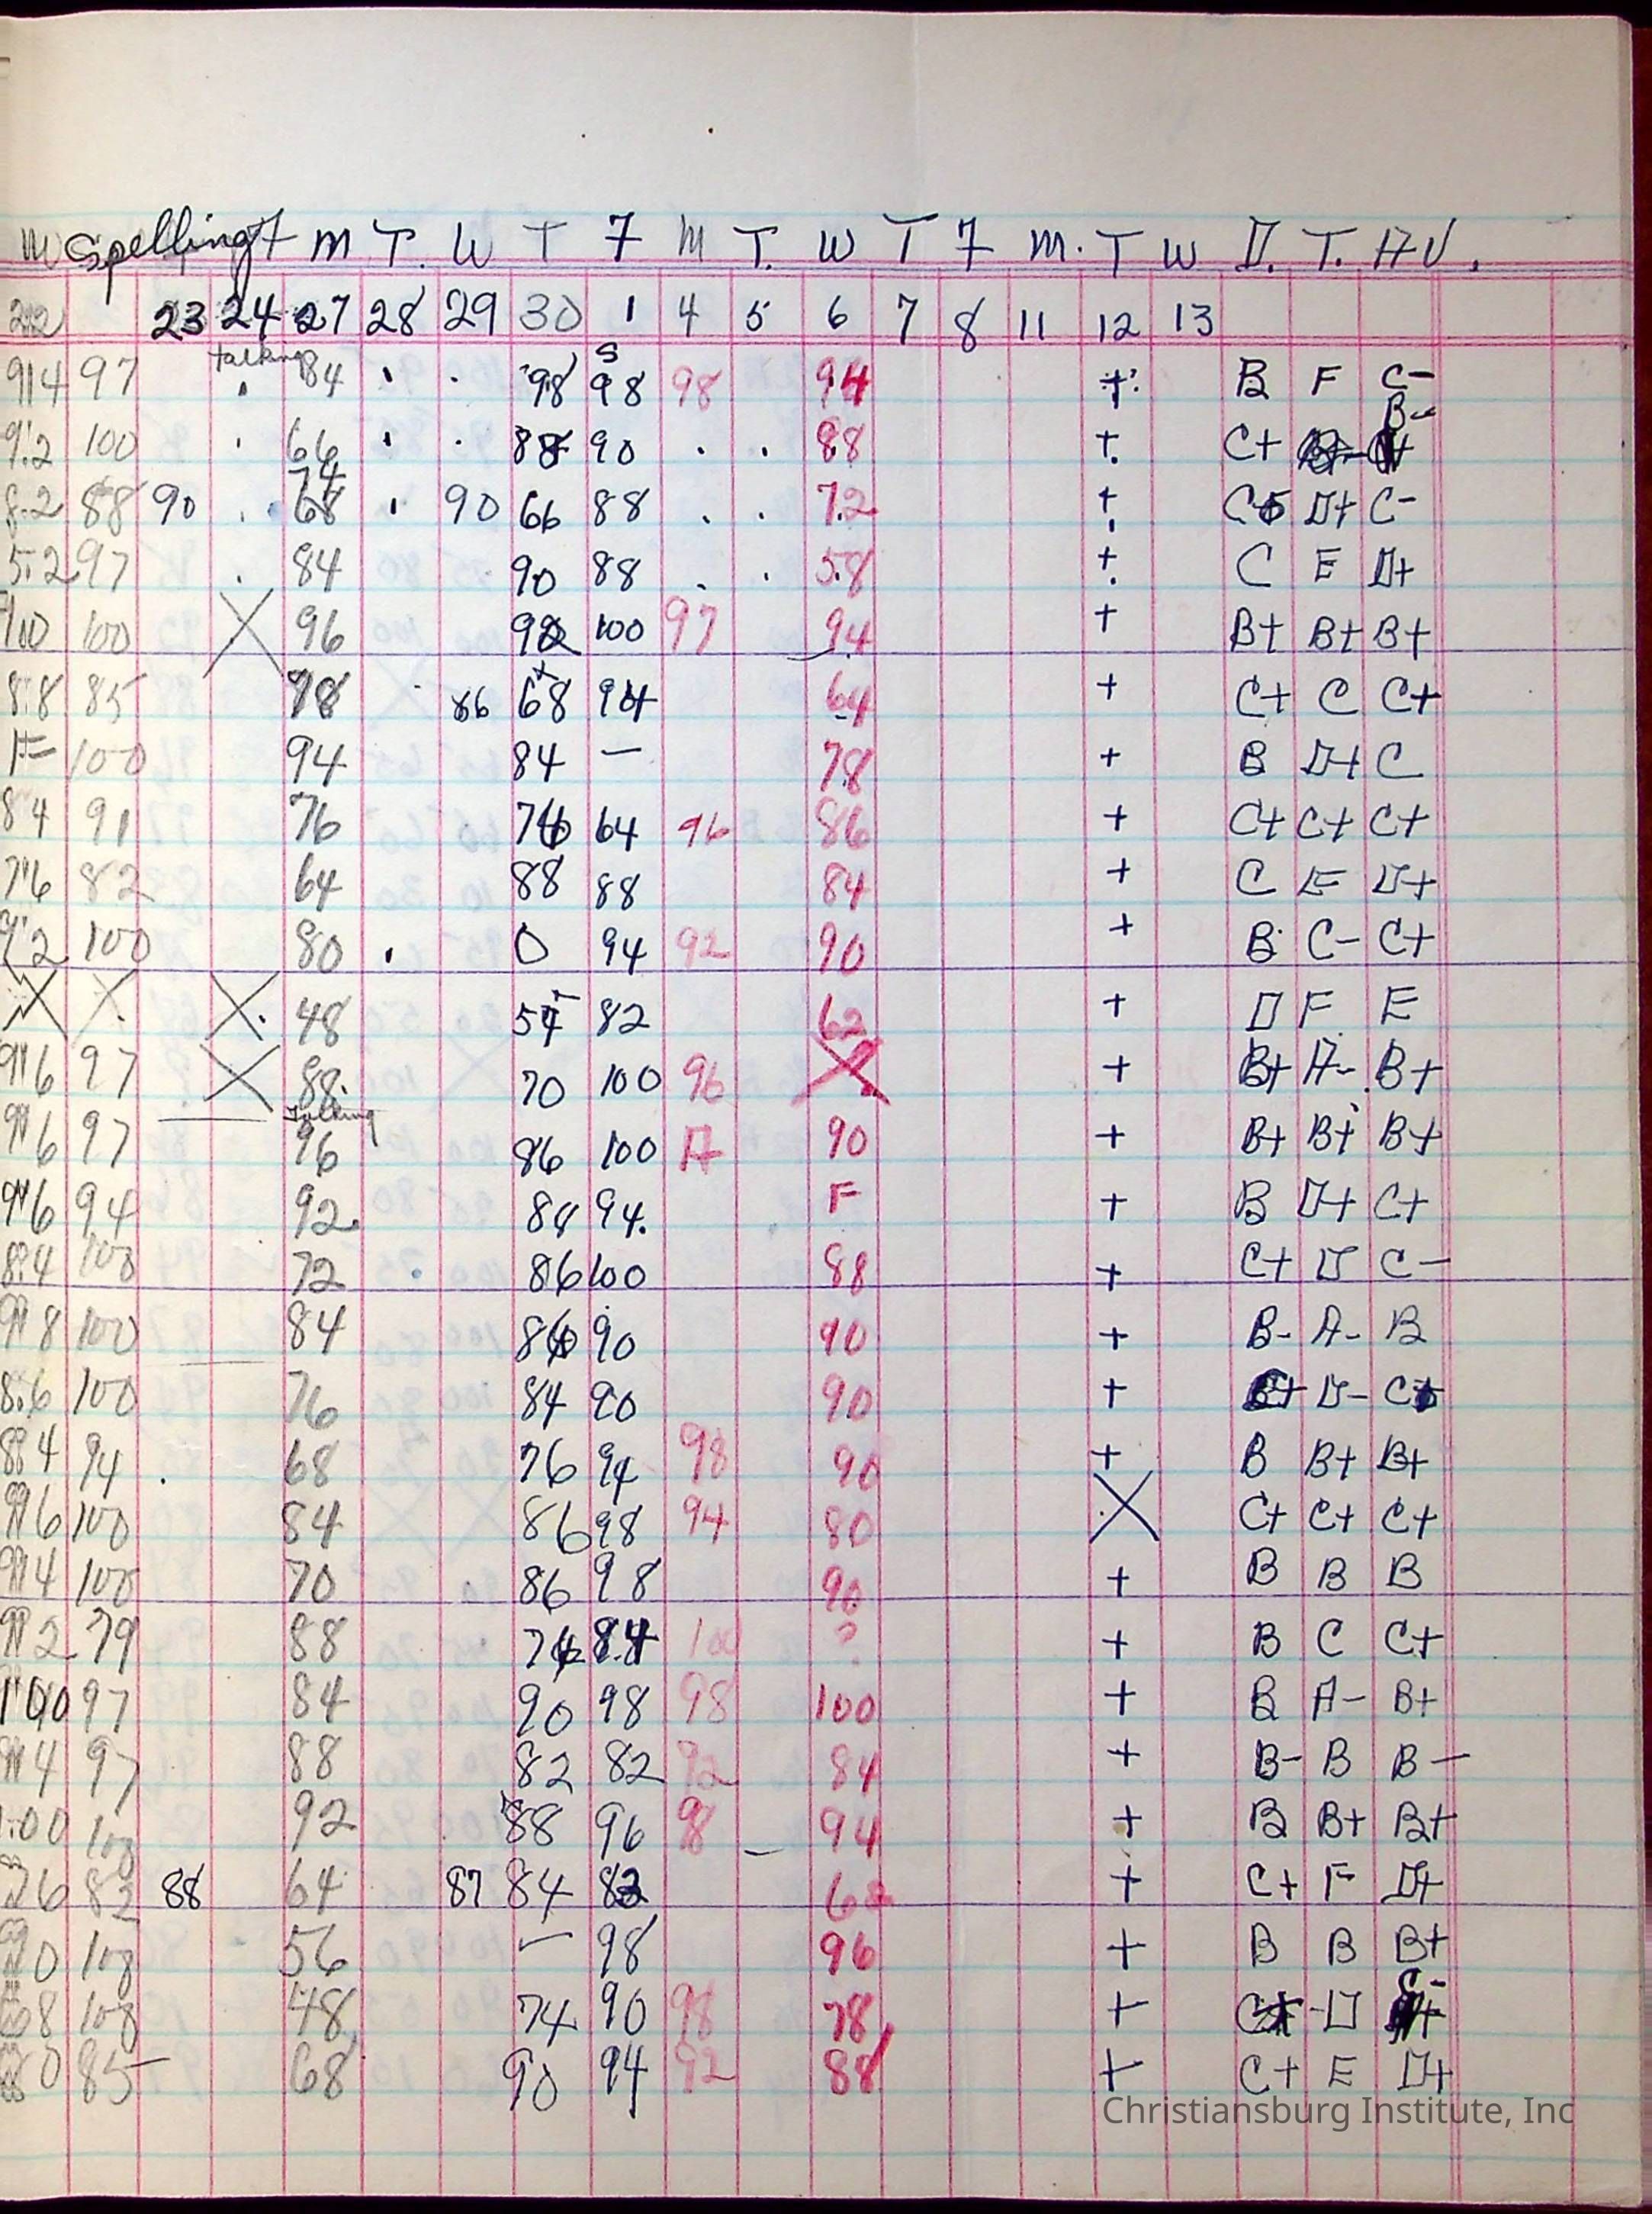 M Spelling F M T. W T F M T. W T F M. T W D. T. AV.
22 23 24 27 28 29 30 1 4 5 6 7 8 11 12 13
talking S
914 97 . 84 . . 98 98 98 94 + B F C-
B-
92 100 . 66 . . 88 90 . . 88 + C+
74
82 88 90 . 68 . 90 66 88 . . 72 + C D+ C-
52 97 . 84 90 88 . . 58 + C E D+
100 100 X 96 92 100 97 94 + B+ B+ B+
88 85 78 86 68 94 64 + C+ C C+
F 100 94 84 — 78 + B D+ C
84 91 76 76 64 96 86 + C+ C+ C+
76 82 64 88 88 84 + C E D+
92 100 80 . 0 94 92 90 + B C- C+
X X X 48 54 82 62 + D F E
96 97 X 88 70 100 96 X + B+ A- B+
Talking
96 97 96 86 100 A 90 + B+ B+ B+
96 94 92 84 94 F + B D+ C+
84 100 72 86 100 88 + C+ D C-
98 100 84 86 90 90 + B- A- B
86 100 76 84 90 90 + D- C
84 94 . 68 76 94 98 90 + B B+ B+
96 100 84 86 98 94 80 X C+ C+ C+
94 100 70 86 98 90 + B B B
92 79 88 74 84 100 ? + B C C+
100 97 84 90 98 98 100 + B A- B+
94 97 88 82 82 92 84 + B- B B-
100 100 92 88 96 98 94 + B B+ B+
76 82 88 64 87 84 82 68 + C+ F D+
90 100 56 — 98 96 + B B B+
C-
68 100 48 74 90 98 78 + D
80 85 68 90 94 92 88 + C+ E D+
Christiansburg Institute, Inc